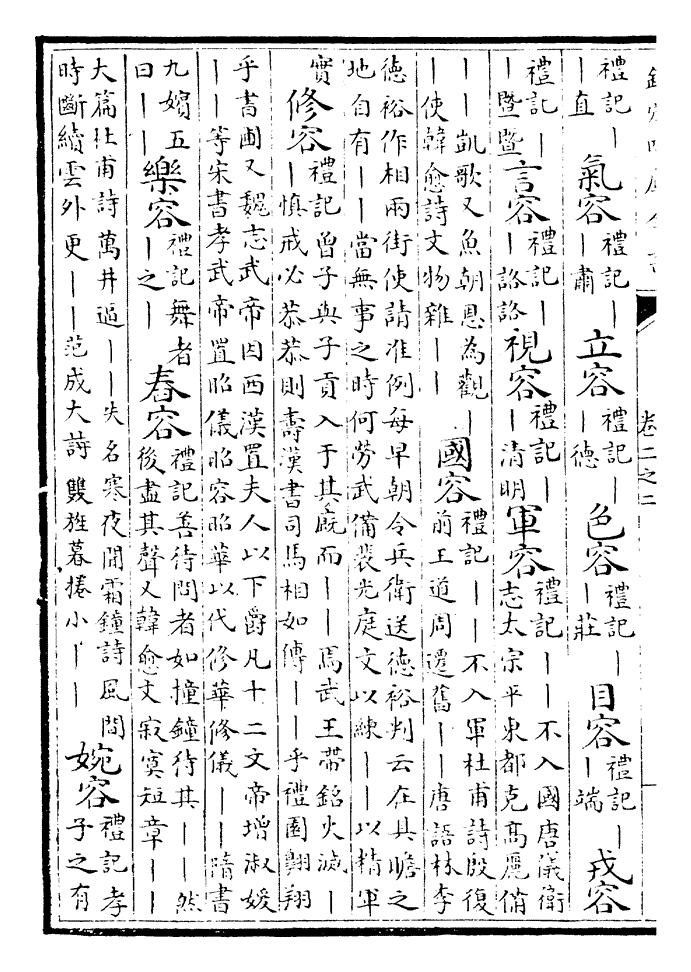 欽定四庫全書
卷二之二
禮記｜
｜直
氣容
禮記｜
｜肅
立容
禮記｜
｜德
色容
禮記｜
｜莊
目容
禮記｜
｜端
戎容
禮記｜
｜暨暨
言容
禮記｜
｜詻詻
視容
禮記｜
｜清明
軍容
禮記｜｜不入國唐儀衛
志太宗平東都克高麗備
｜｜凱歌又魚朝恩為觀｜
｜使韓愈詩文物雜｜｜
國容
禮記｜｜不入軍杜甫詩殷復
前王道周遷舊｜｜唐語林李
德裕作相兩街使請准例每早朝令兵衛送德裕判云在具瞻之
地自有｜｜當無事之時何勞武備裴光庭文以練｜｜以精軍
實
修容
禮記曾子與子貢入于其廐而｜｜馬武王帶銘火滅｜
｜慎戒必恭恭則壽漢書司馬相如傳｜｜乎禮園翺翔
乎書圃又魏志武帝因西漢置夫人以下爵凡十二文帝增淑媛
｜｜等宋書孝武帝置昭儀昭容昭華以代修華修儀｜｜隋書
九嬪五
曰｜｜
樂容
禮記舞者
｜之｜
舂容
禮記善待問者如撞鐘待其｜｜然
後盡其聲又韓愈文寂寞短章｜｜
大篇杜甫詩萬井逼｜｜失名寒夜聞霜鐘詩風間
時斷續雲外更｜｜范成大詩雙旌暮捲小｜｜
婉容
禮記孝
子之有